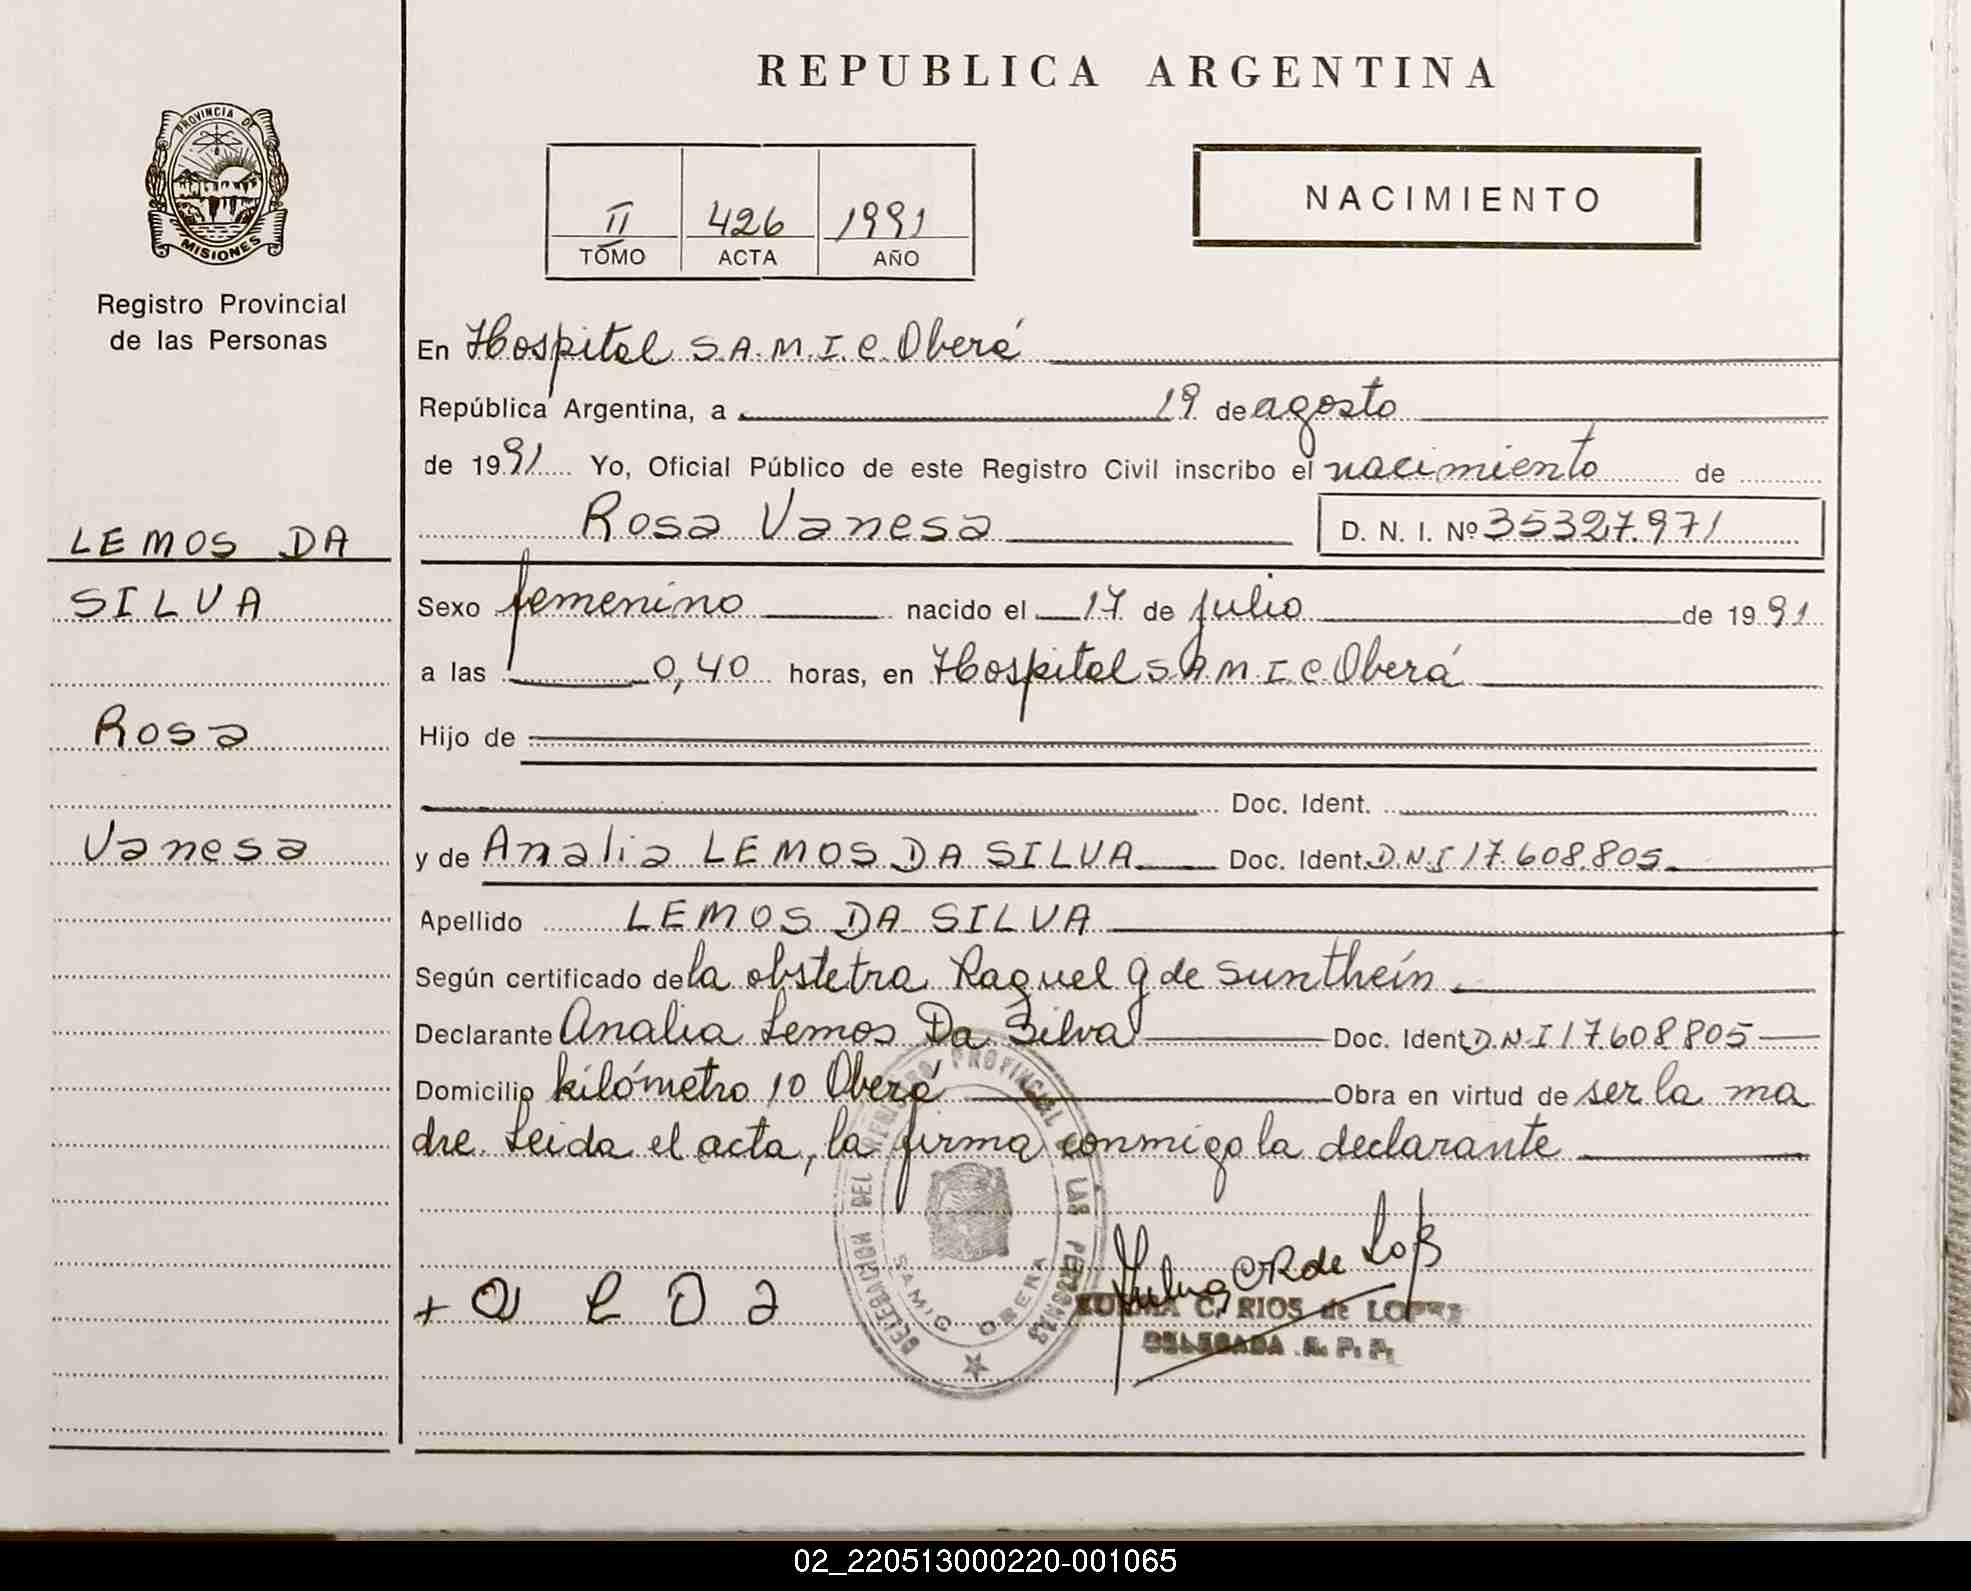 REPUBLICA ARGENTINA
PROVINCIA DE
MISIONES
Registro Provincial
de las Personas
II 426 1991
TOMO ACTA AÑO
NACIMIENTO
LEMOS DA
SILVA
Rosa
Vanesa
En Hospital S.A.M.I.C. Oberá
República Argentina, a 19 de agosto
de 1991 Yo, Oficial Público de este Registro Civil inscribo el nacimiento de
Rosa Vanesa D. N. I. Nº 35327.971
Sexo femenino nacido el 17 de julio de 1991
a las 0,40 horas, en Hospital S.A.M.I.C. Oberá
Hijo de
Doc. Ident.
y de Analia LEMOS DA SILVA Doc. Ident. D.N.I 17.608.805
Apellido LEMOS DA SILVA
Según certificado de la obstetra Raquel G de Sunthein
Declarante Analia Lemos Da Silva Doc. Ident. D.N.I 17.608.805
Domicilio kilómetro 10 Oberá Obra en virtud de ser la ma
dre. Leida el acta, la firma conmigo la declarante
DELEGACION DEL REGISTRO PROVINCIAL DE LAS PERSONAS
SAMIC OBERA
C. RIOS de LOPEZ
DELEGADA R. P. P.
02_220513000220-001065